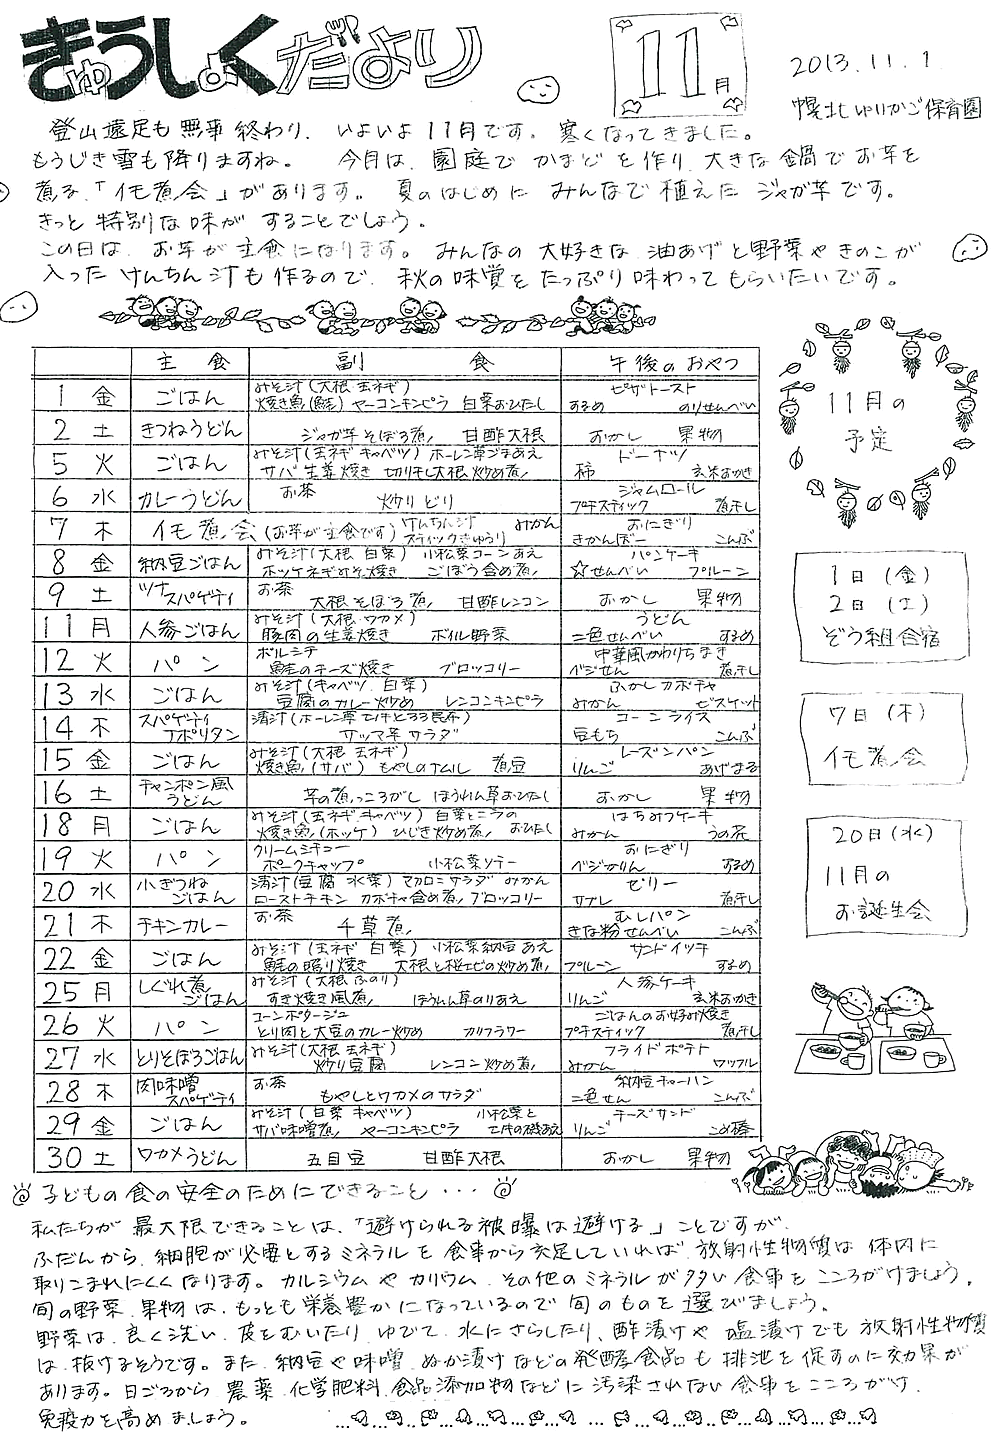 きゅうしょくだより
11月
2013.11.1
幌北ゆりかご保育園
登山遠足も無事終わり、いよいよ11月です。寒くなってきました。
もうじき雪も降りますね。 今月は、園庭でかまどを作り、大きな鍋でお芋を
煮る、「イモ煮会」があります。夏のはじめにみんなで植えたジャガ芋です。
きっと特別な味がすることでしょう。
この日は、お芋が主食になります。みんなの大好きな油あげと野菜やきのこが
入ったけんちん汁も作るので、秋の味覚をたっぷり味わってもらいたいです。
主食 副食 午後のおやつ
1 金 ごはん みそ汁(大根 玉ネギ) ピザトースト
焼き魚(鮭) ヤーコンキンピラ 白菜おひたし するめ のりせんべい
2 土 きつねうどん ジャガ芋そぼろ煮 甘酢大根 おかし 果物
5 火 ごはん みそ汁(玉ネギ キャベツ) ホーレン草ごまあえ ドーナツ
サバ生姜焼き 切り干し大根炒め煮 柿 玄米おかき
6 水 カレーうどん お茶 炒りどり ジャムロール
プチスティック 煮干し
7 木 イモ煮会(お芋が主食です) けんちん汁 みかん おにぎり
スティックきゅうり きかんぼー こんぶ
8 金 納豆ごはん みそ汁(大根 白菜) 小松菜コーンあえ パンケーキ
ホッケネギみそ焼き ごぼう含め煮 ☆せんべい プルーン
9 土 ツナスパゲティ お茶 大根そぼろ煮 甘酢レンコン おかし 果物
11 月 人参ごはん みそ汁(大根 ワカメ) うどん
豚肉の生姜焼き ボイル野菜 二色せんべい するめ
12 火 パン ボルシチ 中華風かわりちまき
鮭のチーズ焼き ブロッコリー ベジせん 煮干し
13 水 ごはん みそ汁(キャベツ 白菜) ふかしカボチャ
豆腐のカレー炒め レンコンキンピラ みかん ビスケット
14 木 スパゲティナポリタン 清汁(ホーレン草 えのきとろろ昆布) コーンライス
サツマ芋サラダ 豆もち こんぶ
15 金 ごはん みそ汁(大根 玉ネギ) レーズンパン
焼き魚(サバ) もやしのナムル 煮豆 りんご あげまる
16 土 チャンポン風うどん 芋の煮っころがし ほうれん草おひたし おかし 果物
18 月 ごはん みそ汁(玉ネギ キャベツ) 白菜とニラの はちみつケーキ
焼き魚(ホッケ) ひじき炒め煮 おひたし みかん うの花
19 火 パン クリームシチュー おにぎり
ポークチャップ 小松菜ソテー ベジかりん するめ
20 水 小ぎつねごはん 清汁(豆腐 水菜) マカロニサラダ みかん ゼリー
ローストチキン カボチャ含め煮 ブロッコリー サブレ 煮干し
21 木 チキンカレー お茶 千草煮 むしパン
きな粉せんべい こんぶ
22 金 ごはん みそ汁(玉ネギ 白菜) 小松菜納豆あえ サンドイッチ
鮭の照り焼き 大根と桜エビの炒め煮 プルーン するめ
25 月 しぐれ煮ごはん みそ汁(大根 ふのり) 人参ケーキ
すき焼き風煮 ほうれん草のりあえ りんご 玄米おかき
26 火 パン コーンポタージュ ごはんのお好み焼き
とり肉と大豆のカレー炒め カリフラワー プチスティック 煮干し
27 水 とりそぼろごはん みそ汁(大根 玉ネギ) フライドポテト
炒り豆腐 レンコン炒め煮 みかん ワッフル
28 木 肉味噌スパゲティ お茶 もやしとワカメのサラダ 納豆チャーハン
二色せん こんぶ
29 金 ごはん みそ汁(白菜 キャベツ) 小松菜と チーズサンド
サバ味噌煮 ヤーコンキンピラ えのきの磯あえ りんご こめ棒
30 土 ワカメうどん 五目豆 甘酢大根 おかし 果物
11月の
予定
1日(金)
2日(土)
ぞう組合宿
7日(木)
イモ煮会
20日(水)
11月の
お誕生会
子どもの食の安全のためにできること・・・
私たちが最大限できることは、「避けられる被曝は避ける」ことですが、
ふだんから、細胞が必要とするミネラルを食事から充足していれば、放射性物質は体内に
取りこまれにくくなります。カルシウムやカリウム、その他のミネラルが多い食事をこころがけましょう。
旬の野菜、果物は、もっとも栄養豊かになっているので旬のものを選びましょう。
野菜は、良く洗い、皮をむいたり、ゆでて、水にさらしたり、酢漬けや塩漬けでも放射性物質
は、抜けるそうです。また、納豆や味噌、ぬか漬けなどの発酵食品も排泄を促すのに効果が
あります。日ごろから、農薬、化学肥料、食品添加物などに汚染されない食事をこころがけ、
免疫力を高めましょう。